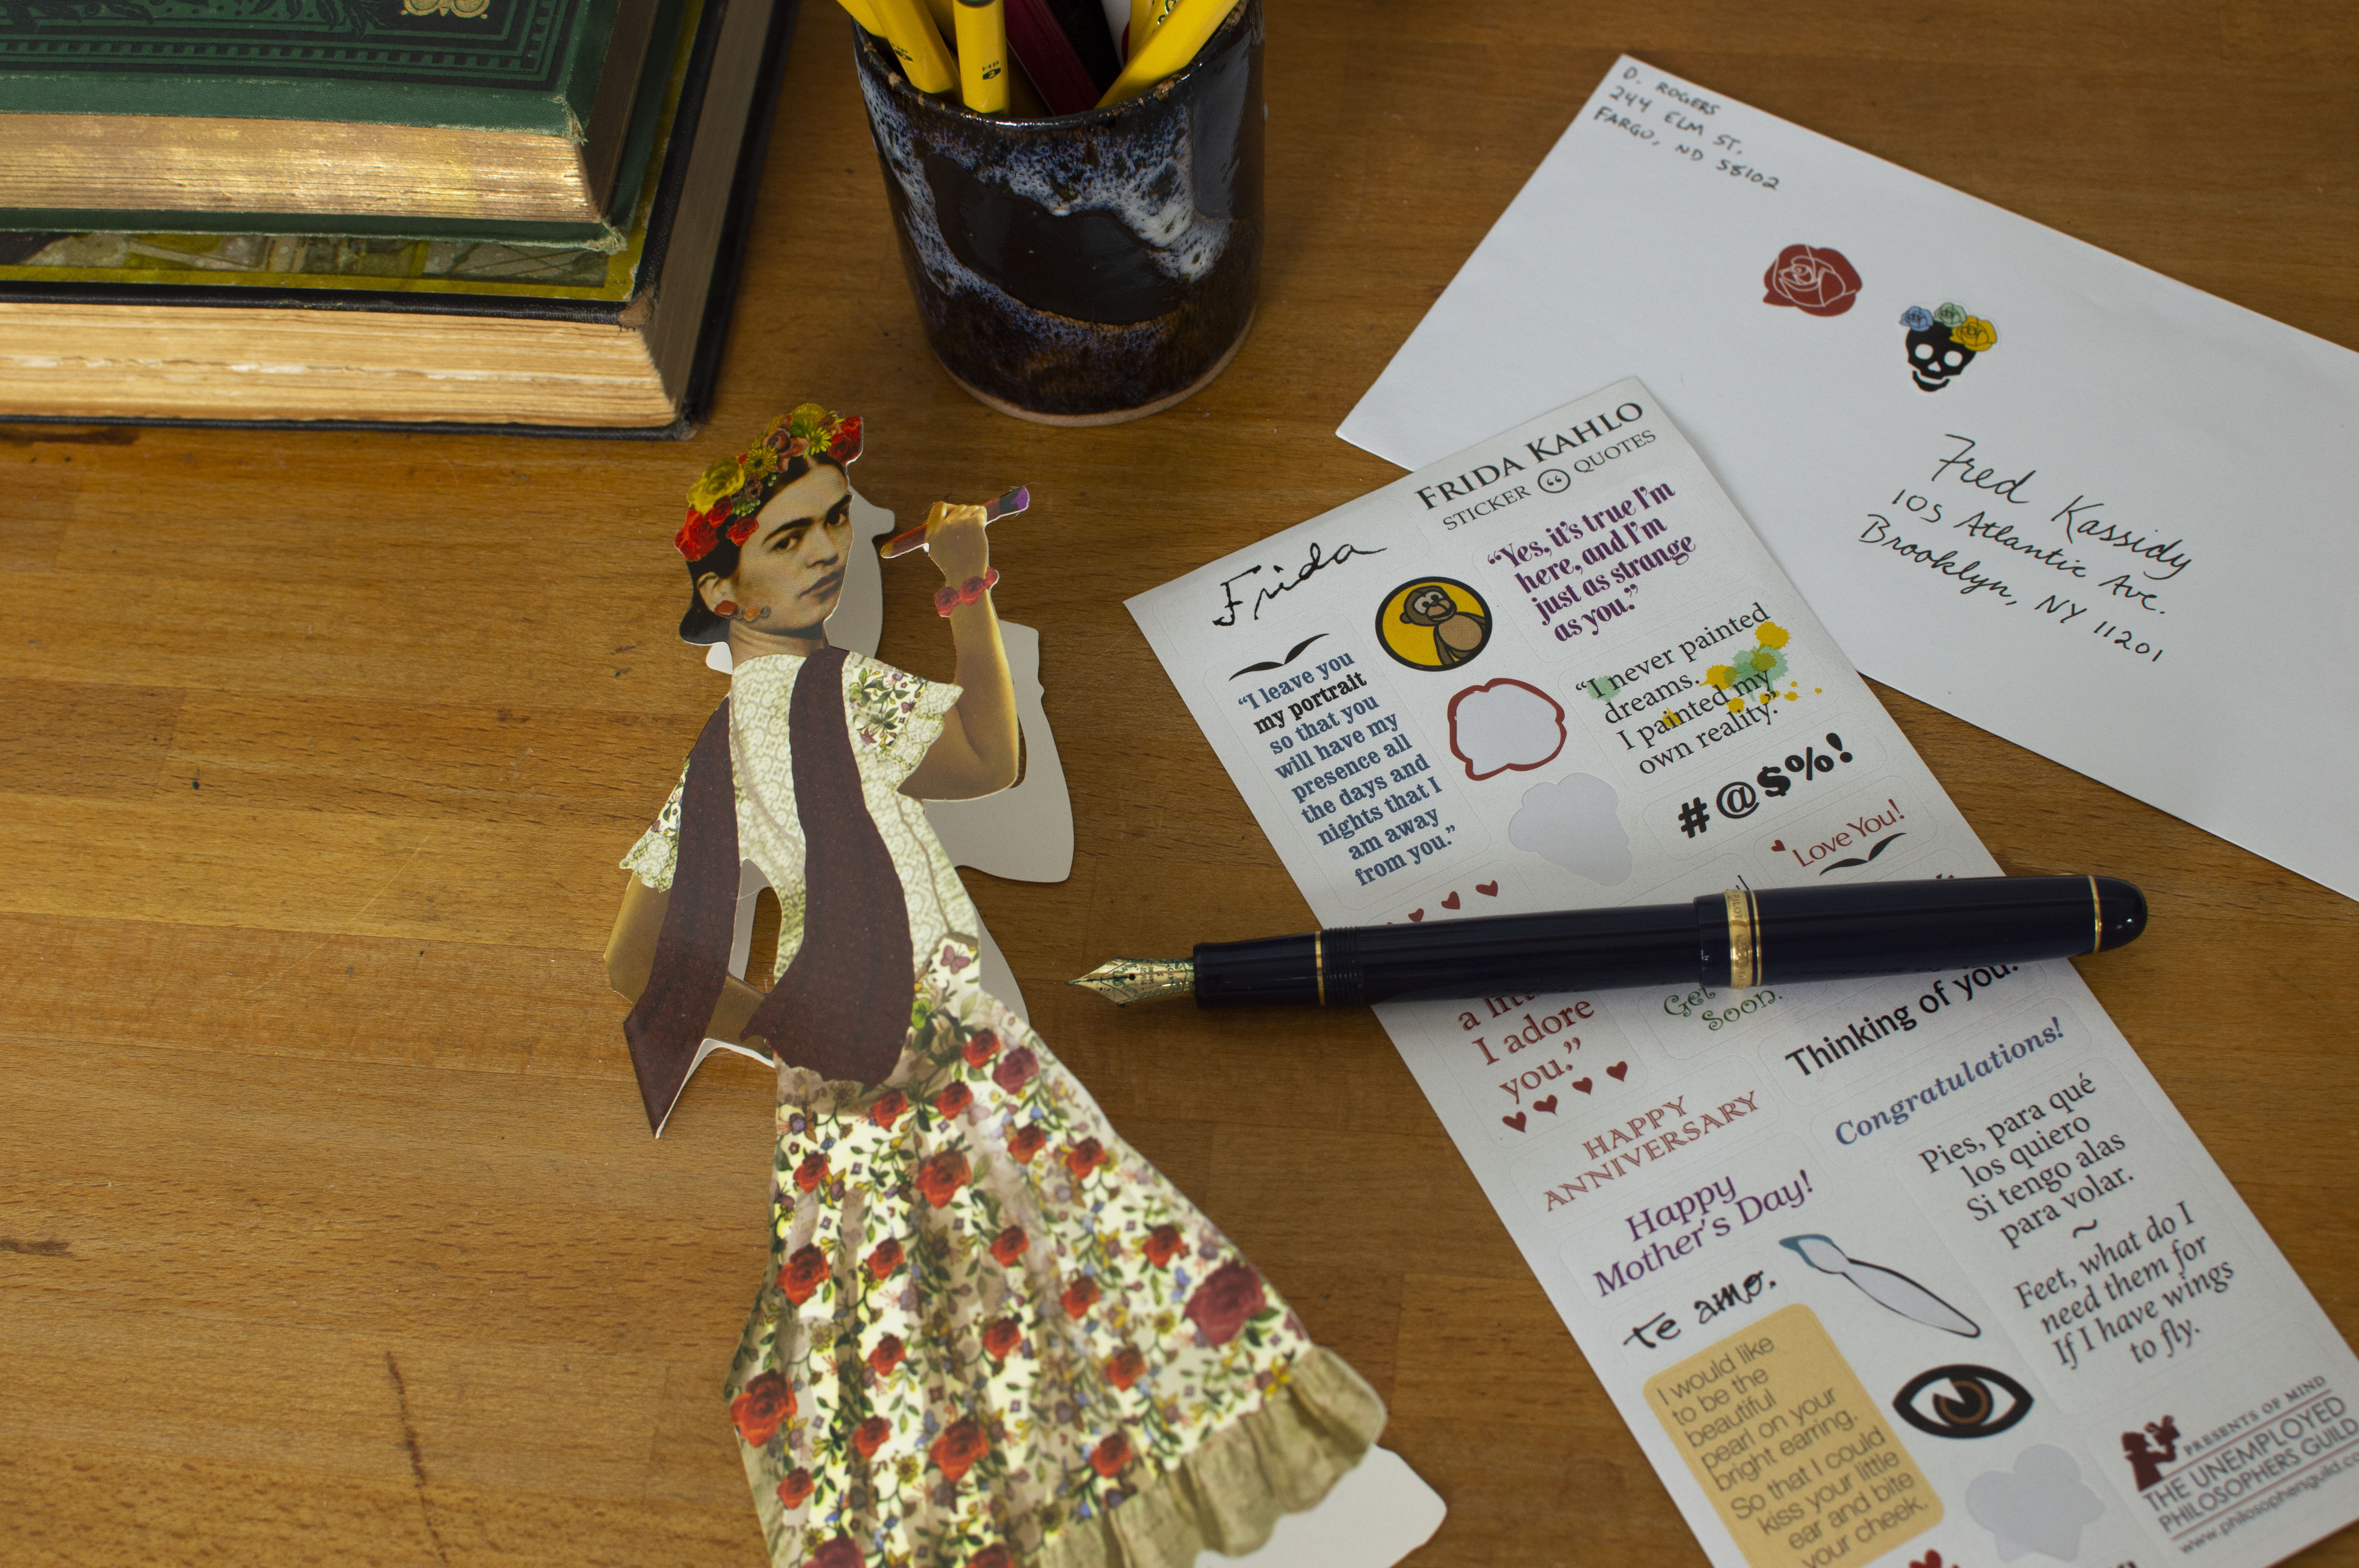 D. ROGERS
244 ELM ST.
FARGO, ND 58102
Fred Kassidy
105 Atlantic Ave.
Brooklyn, NY 11201
HB
2
FRIDA KAHLO
STICKER “ QUOTES
Frida
“Yes, it’s true I’m
here, and I’m
just as strange
as you.”
“I leave you
my portrait
so that you
will have my
presence all
the days and
nights that I
am away
from you.”
“I never painted
dreams.
I painted my
own reality.”
#@$%!
Love You!
a
I adore
you.”
Get
Soon.
Thinking of you.
Congratulations!
HAPPY
ANNIVERSARY
Happy
Mother’s Day!
te amo.
Pies, para qué
los quiero
Si tengo alas
para volar.
~
Feet, what do I
need them for
If I have wings
to fly.
I would like
to be the
beautiful
pearl on your
bright earring.
So that I could
kiss your little
ear and bite
your cheek.
PRESENTS OF MIND
THE UNEMPLOYED
PHILOSOPHERS GUILD
www.philosophersguild.co